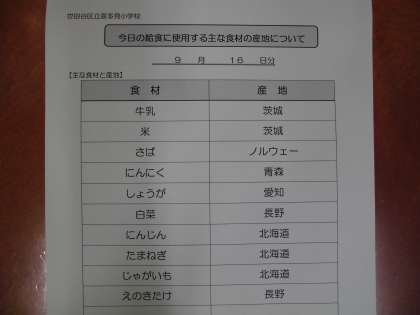 世田谷区立喜多見小学校
今日の給食に使用する主な食材の産地について
9 月 16 日分
【主な食材と産地】
食 材 産 地
牛乳 茨城
米 茨城
さば ノルウェー
にんにく 青森
しょうが 愛知
白菜 長野
にんじん 北海道
たまねぎ 北海道
じゃがいも 北海道
えのきたけ 長野